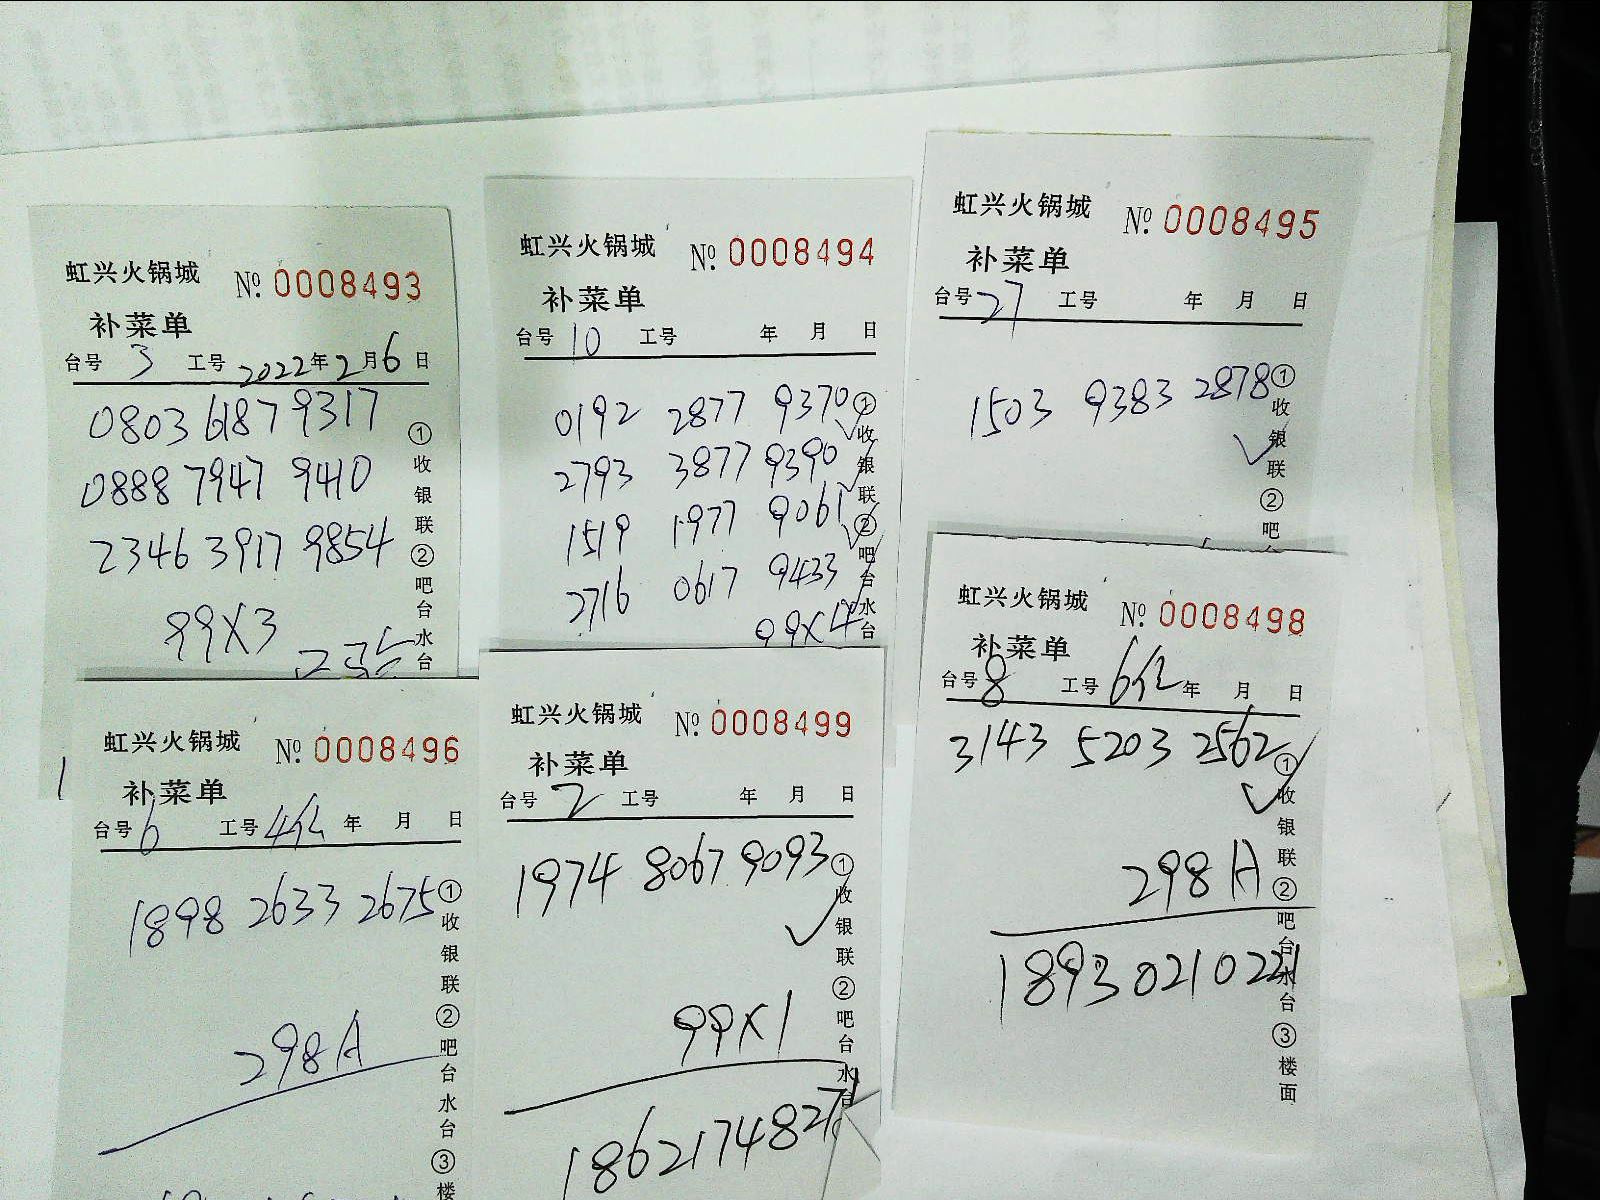 虹兴火锅城 № 0008493
补菜单
台号 3 工号 2022年2月6日
0803 6187 9317
0888 7947 9410
2346 3917 9854
99X3
①收银联②吧台水台
虹兴火锅城 № 0008494
补菜单
台号 10 工号 年 月 日
0192 2877 9370
2793 3877 9390
1519 1977 9061
2716 0617 9433
99X4
①收银联②吧台水台
虹兴火锅城 № 0008495
补菜单
台号 27 工号 年 月 日
1503 9383 2878
①收银联②吧
虹兴火锅城 № 0008496
补菜单
台号 6 工号 4位 年 月 日
1898 2633 2675
298A
①收银联②吧台水台③楼
虹兴火锅城 № 0008499
补菜单
台号 2 工号 年 月 日
1974 8067 9093
99X1
①收银联②吧台水台
虹兴火锅城 № 0008498
补菜单
台号 8 工号 6位 年 月 日
3143 5203 2562
298A
18930210221
①收银联②吧台水台③楼面